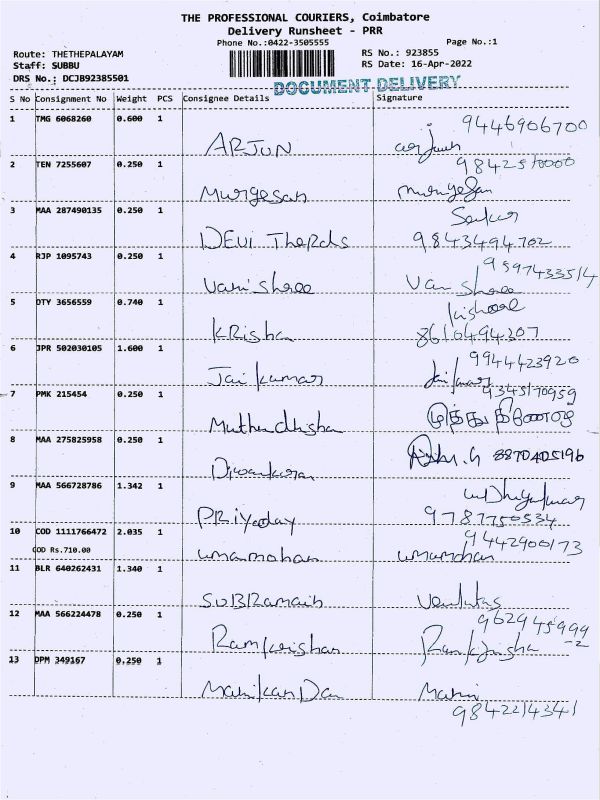 THE PROFESSIONAL COURIERS, Coimbatore
Delivery Runsheet - PRR
Phone No.:0422-3505555
Page No.:1
Route: THETHEPALAYAM
RS No.: 923855
Staff: SUBBU
RS Date: 16-Apr-2022
DRS No.: DCJB92385501
DOCUMENT DELIVERY
S No Consignment No Weight PCS Consignee Details Signature
1 TMG 6068260 0.600 1
9446906700
ARJUN
2 TEN 7255607 0.250 1
Murgesan murugesan
3 MAA 287490135 0.250 1
DEVI
9843494702
4 RJP 1095743 0.250 1
9597433514
Vani Shree Vani Shree
5 DTY 3656559 0.740 1
kishore
KRISHA 8610494307
6 JPR 502030105 1.600 1
9944423920
Jai kumar Jai kumar
7 PMK 215454 0.250 1
9345170959
8 MAA 275825958 0.250 1
8870405196
Diwankaran
9 MAA 566728786 1.342 1
PRiyaday 9787750534
10 COD 1111766472 2.035 1
9442900173
COD Rs.710.00
umamohan umamohan
11 BLR 640262431 1.340 1
SUBRamain
12 MAA 566224478 0.250 1
Ramkrishan
13 DPM 349167 0.250 1
ManikanDan Mani
9842214341